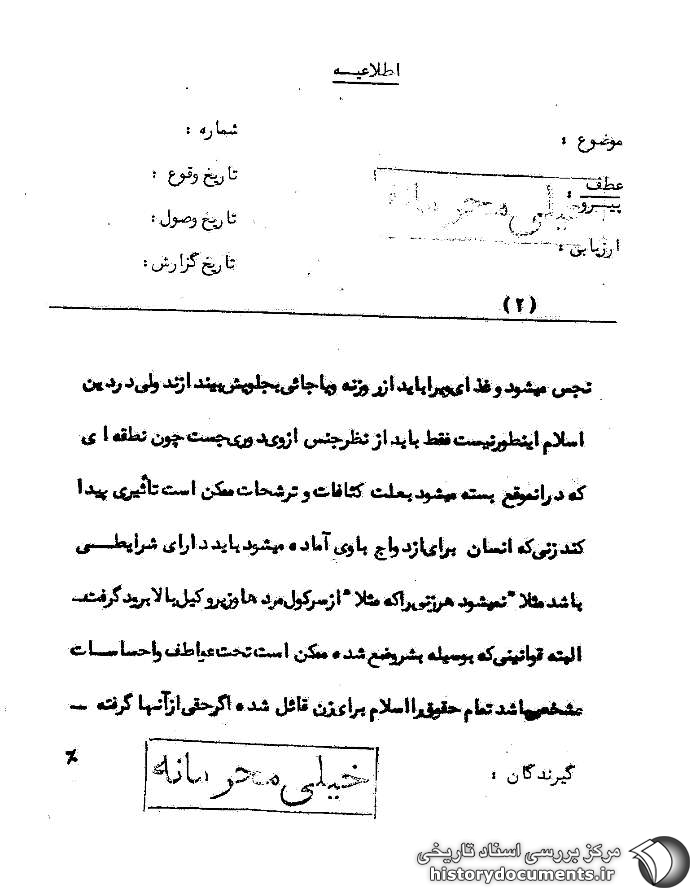 اطلاعیـــه
موضوع :
شماره :
عطف
پیرو :
تاریخ وقوع :
خیلی محرمانه
تاریخ وصول :
ارزیابی :
تاریخ گزارش :
(۲)
نجس میشود و غذای ویرا باید از روزنه ویا جائی بجلویش بیندازند ولی در دین
اسلام اینطور نیست فقط باید از نظر جنس ازوی دوری جست چون نطقه ای
که درانموقع بسته میشود بعلت کثافات و ترشحات ممکن است تأثیری پیدا
کند زنی که انسان برای ازدواج باوی آماده میشود باید دارای شرایطـــی
باشد مثلا" نمیشود هر زنی را که مثلا" از سرکول مرد ها وزیر وکیل بالا برید گرفتـ
البته قوانینی که بوسیله بشر وضع شده ممکن است تحت عواطف واحساسات
مشخص باشد تمام حقوق را اسلام برای زن قائل شده اگر حقی از آنها گرفته ــ
گیرندگان :
خیلی محرمانه
مرکز بررسی اسناد تاریخی
historydocuments.ir